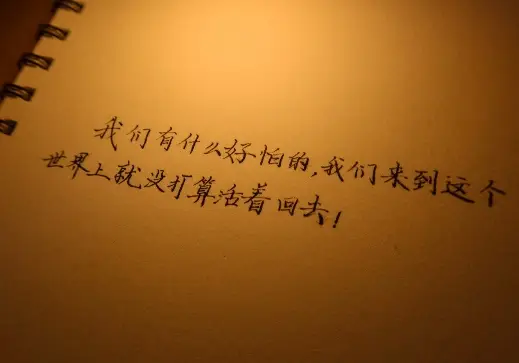 我们有什么好怕的,我们来到这个
世界上就没打算活着回去!